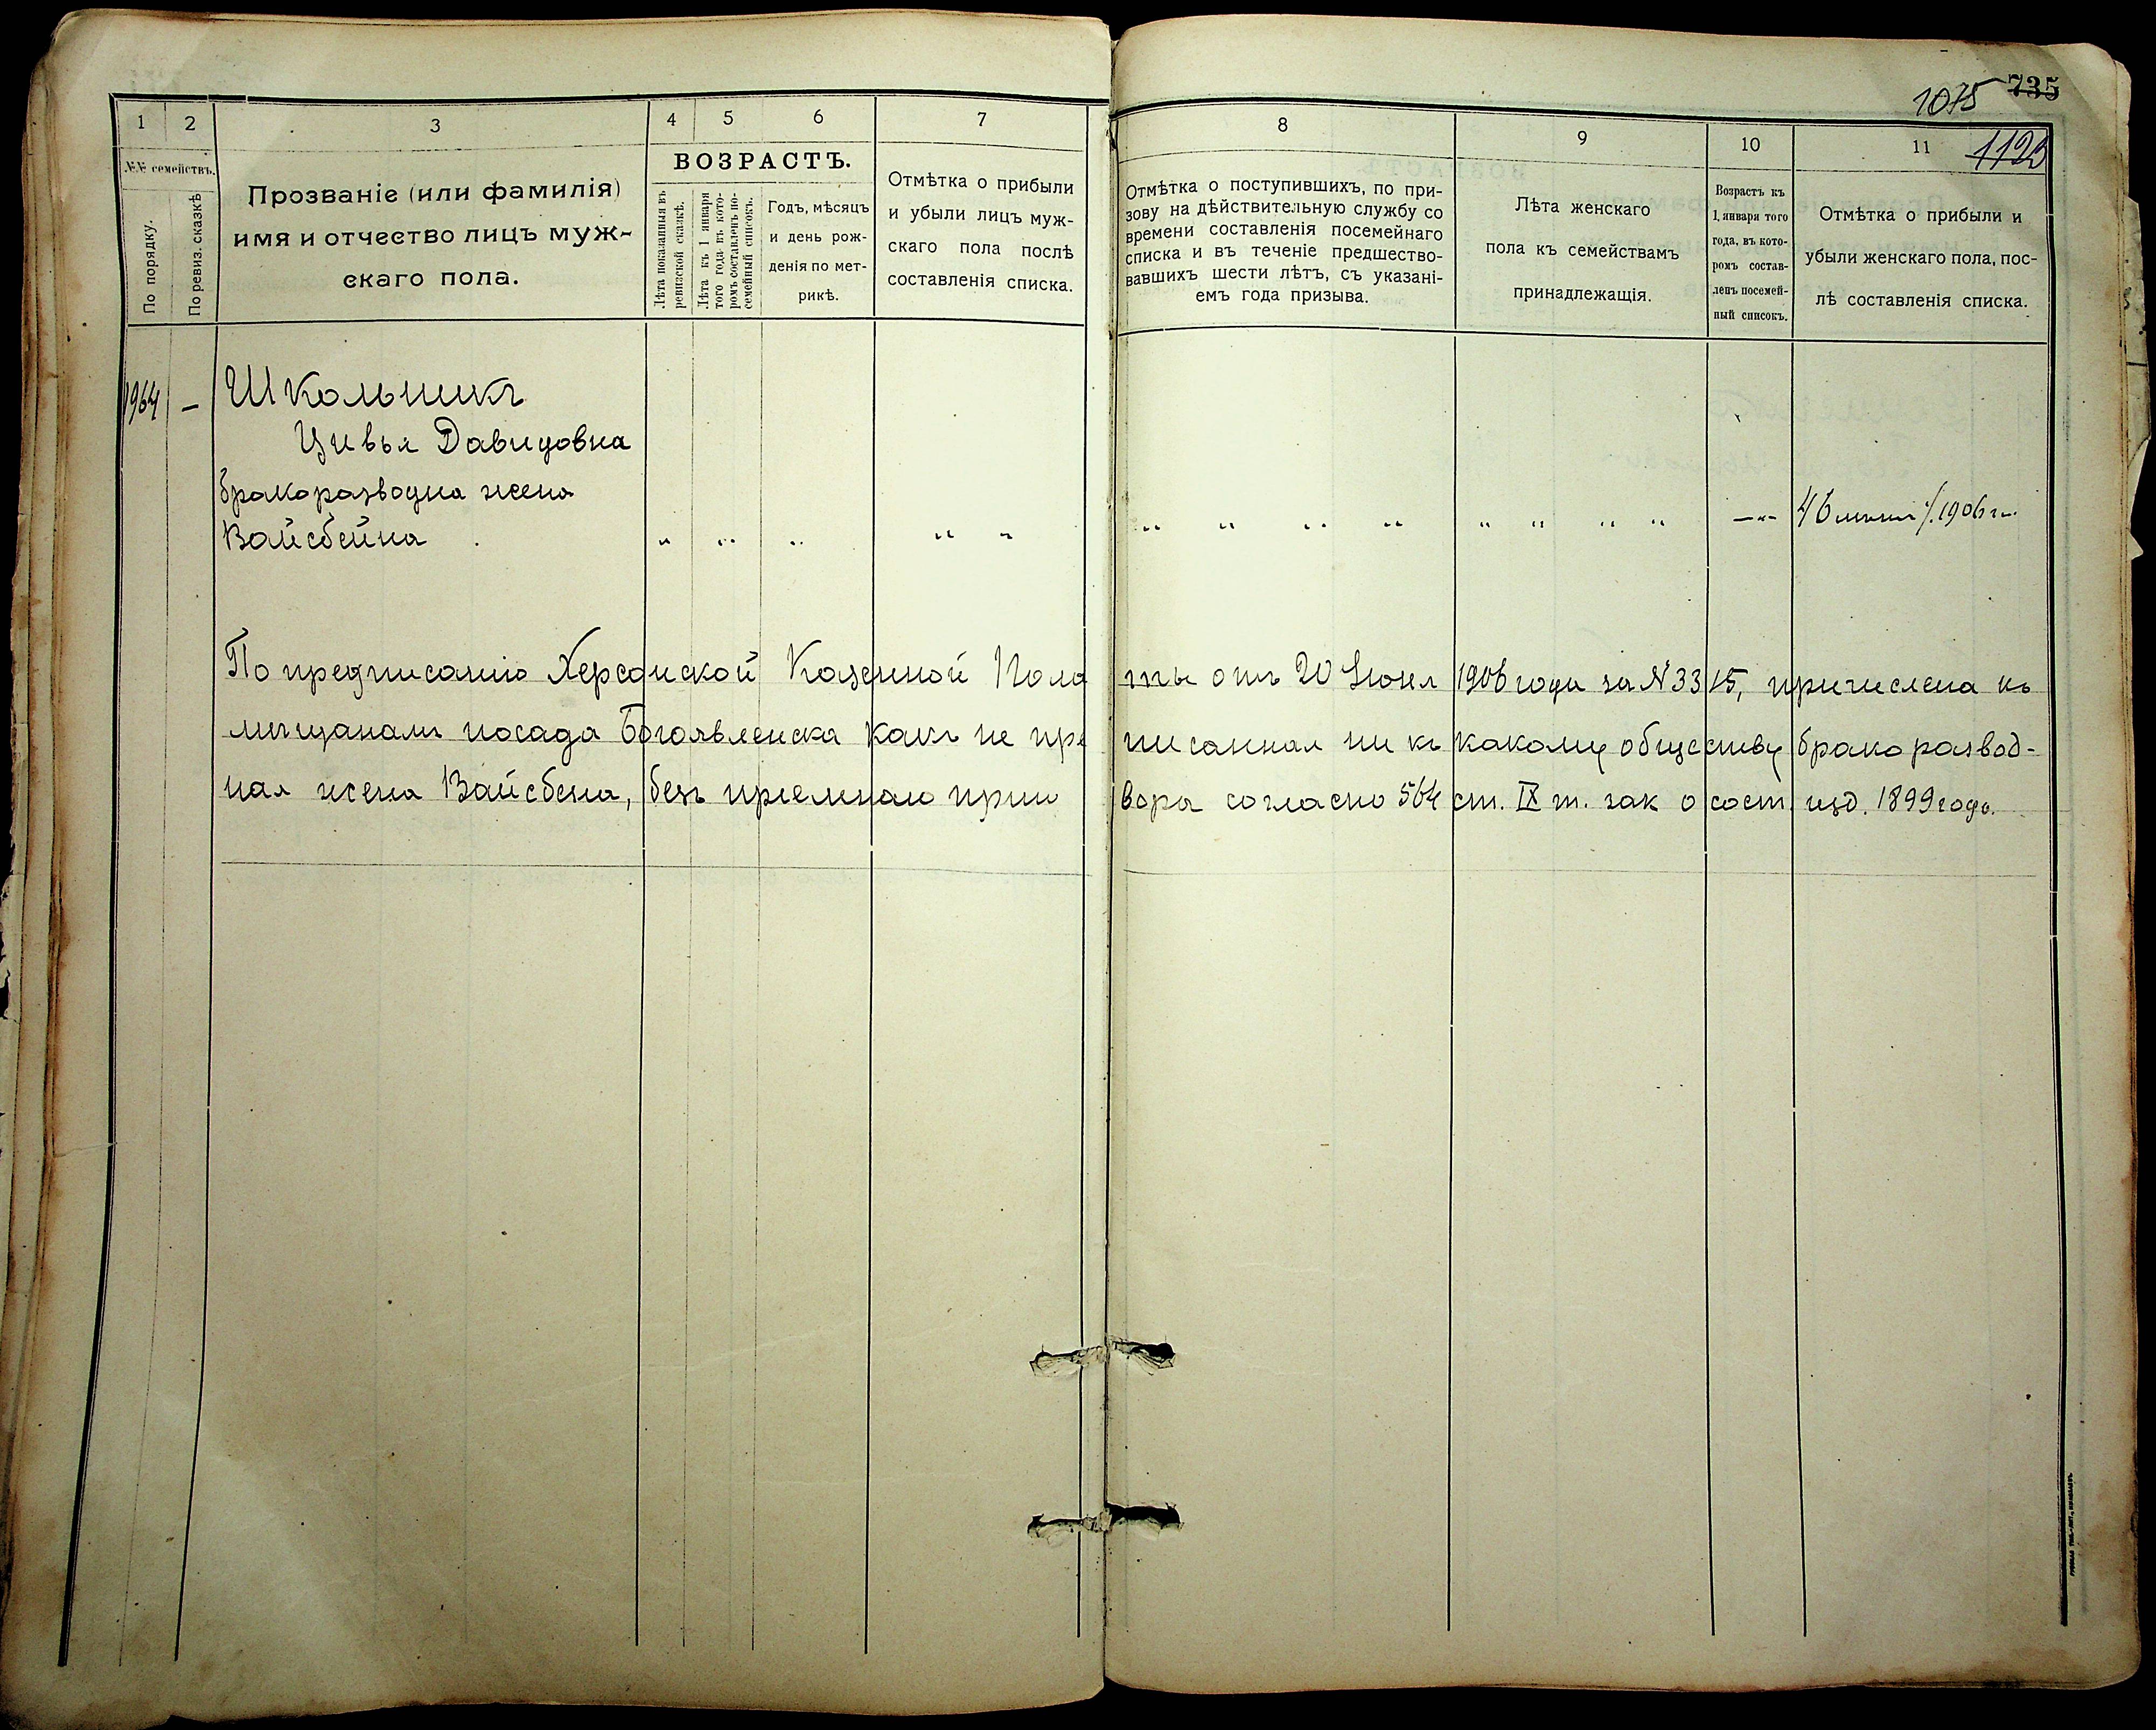 735
1075
1123
1 2 3 4 5 6 7
№№ семействъ.
По порядку.
По ревиз. сказкѣ
Прозваніе (или фамилія)
имя и отчество лицъ муж-
скаго пола.
ВОЗРАСТЪ.
Лѣта показанныя въ
ревизской сказкѣ.
Лѣта къ 1 января
того года въ кото-
ромъ составленъ по-
семейный списокъ.
Годъ, мѣсяцъ
и день рож-
денія по мет-
рикѣ.
Отмѣтка о прибыли
и убыли лицъ муж-
скаго пола послѣ
составленія списка.
8 9 10 11
Отмѣтка о поступившихъ, по при-
зову на дѣйствительную службу со
времени составленія посемейнаго
списка и въ теченіе предшество-
вавшихъ шести лѣтъ, съ указані-
емъ года призыва.
Лѣта женскаго
пола къ семействамъ
принадлежащія.
Возрастъ къ
1 января того
года, въ кото-
ромъ состав-
ленъ посемей-
ный списокъ.
Отмѣтка о прибыли и
убыли женскаго пола, пос-
лѣ составленія списка.
1964 – Школьникъ
Цивья Давидовна
бракоразводна жена
Вайсбейна " " " " " " " " " " " " " –"– 1906 г.
По предписанію Херсонской Казенной Пала ты отъ 20 Іюня 1906 года за № 3315, причислена къ
мѣщанамъ посада Богоявленска какъ не при писанная ни къ какому обществу бракоразвод-
ная жена Вайсбена, безъ пріемнаго приго вора согласно 564 ст. IX т. зак о сост изд. 1899 года.